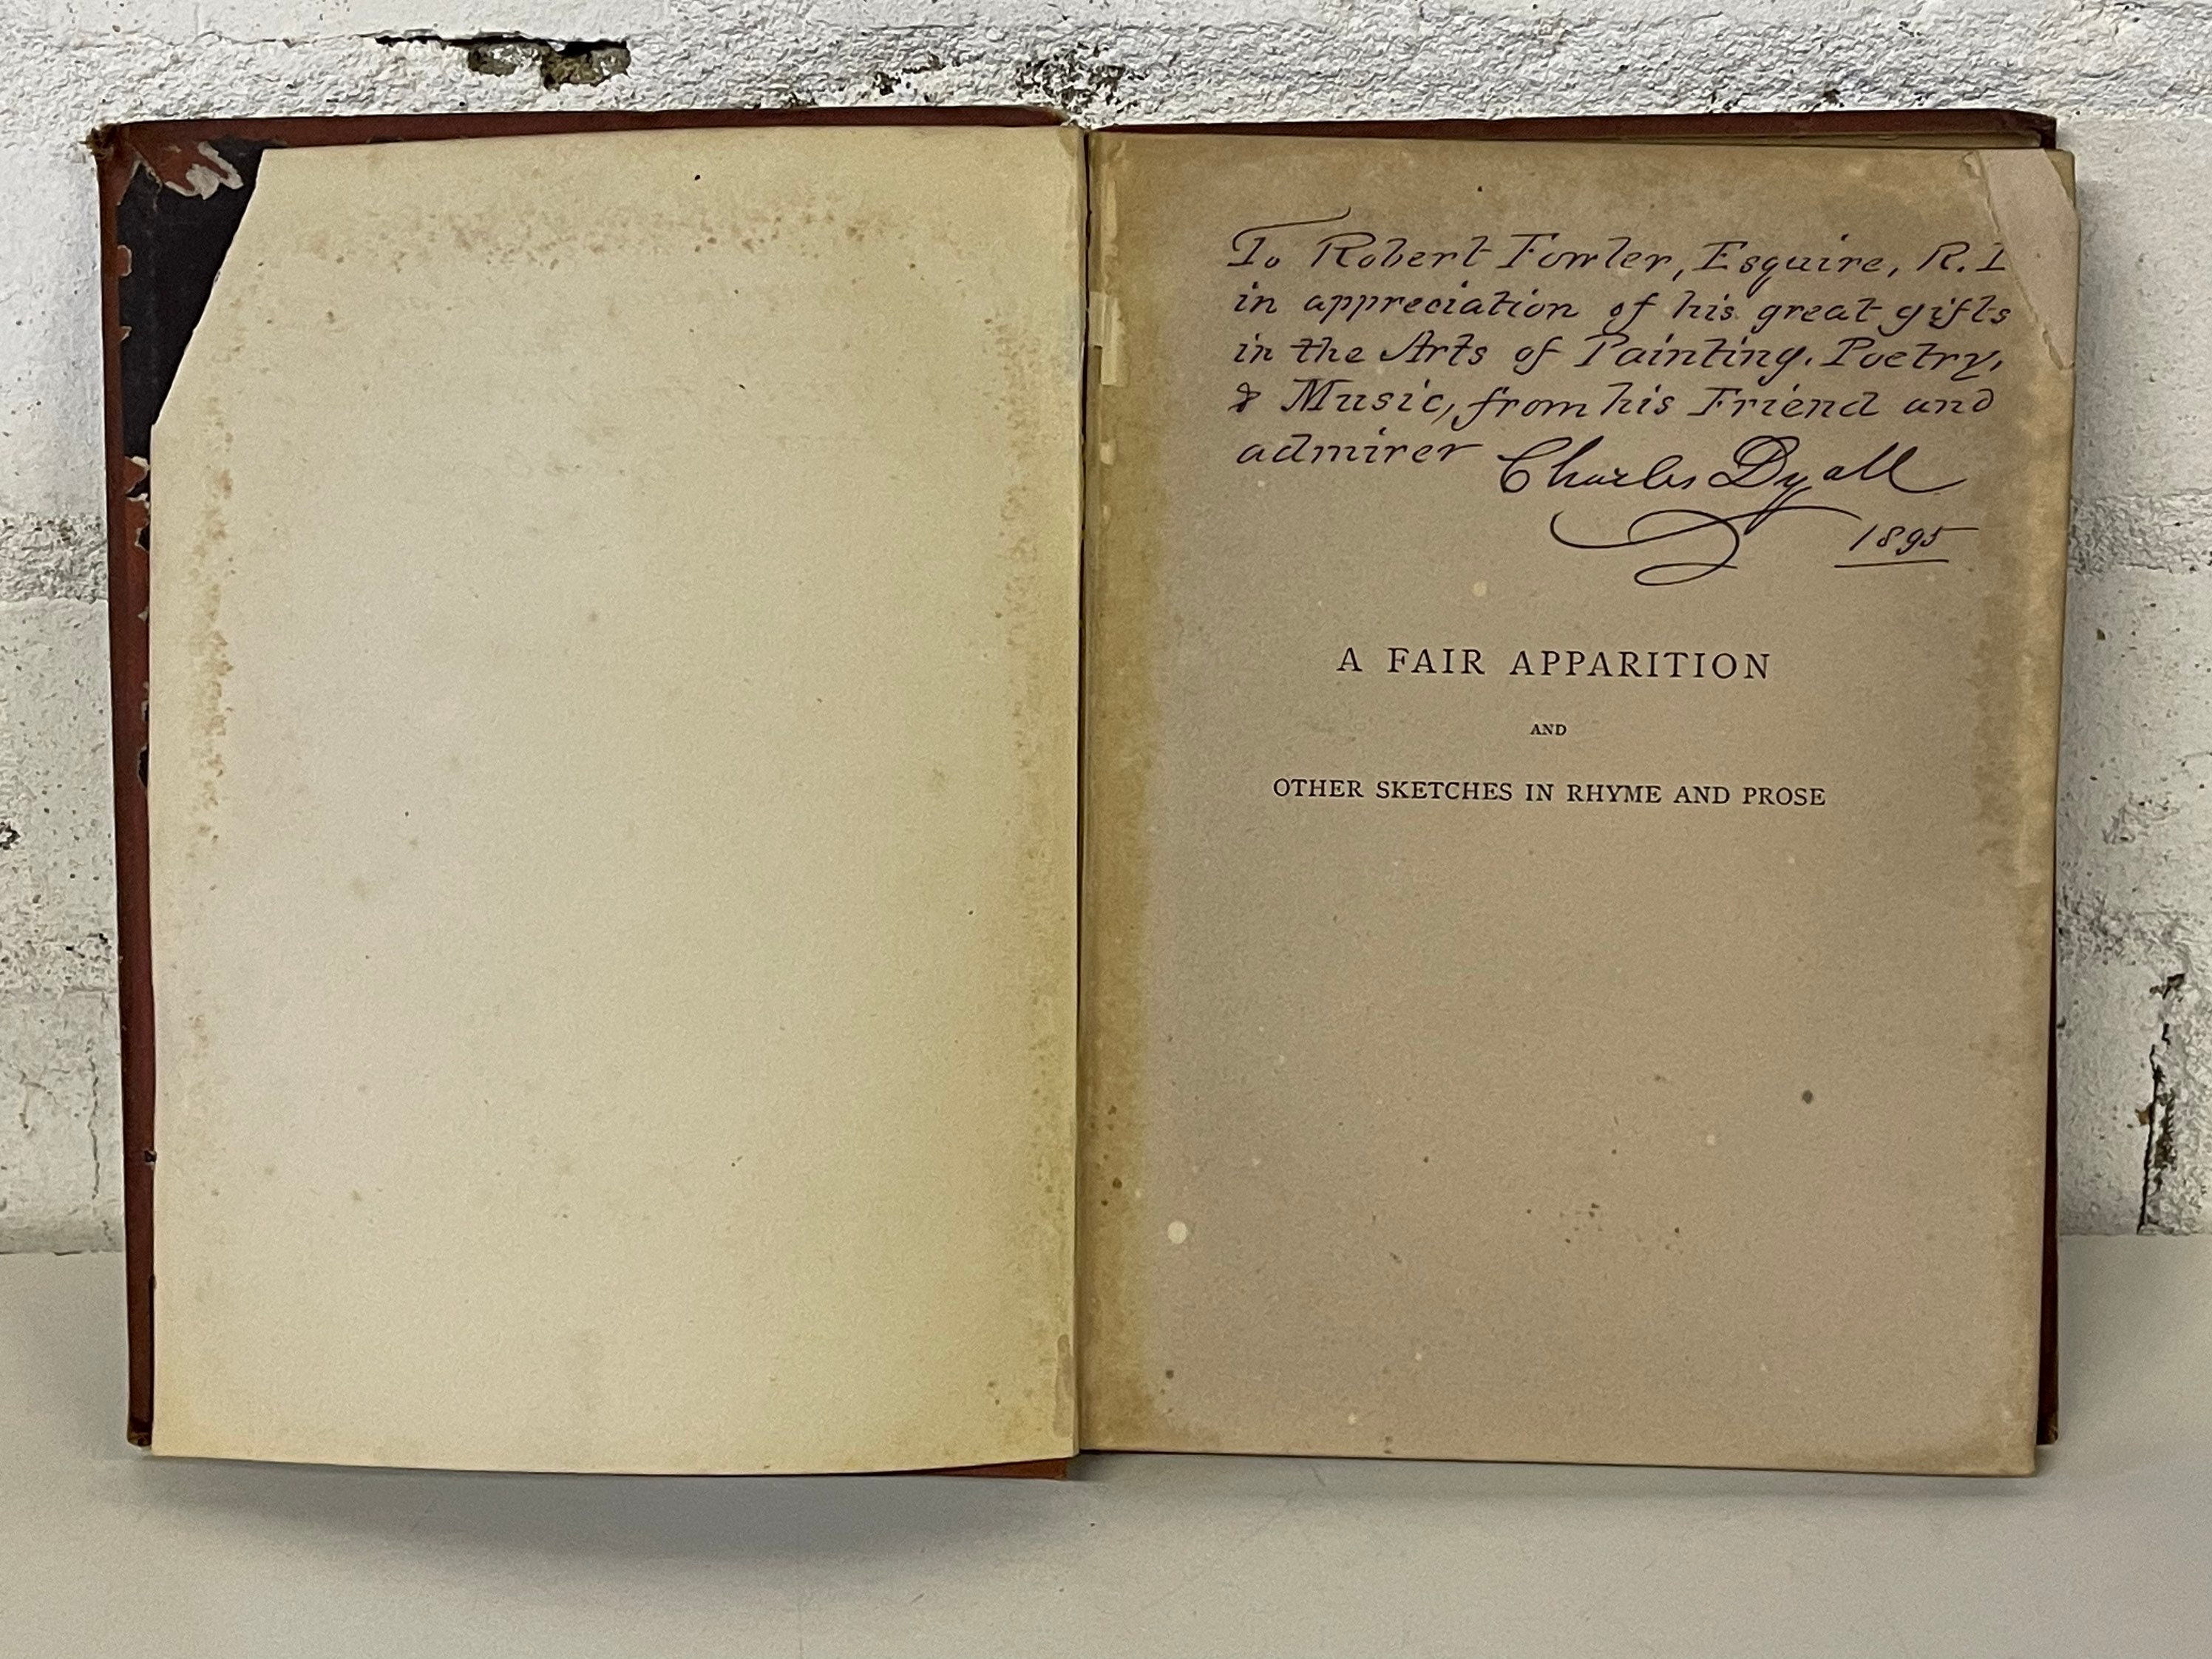 To Robert Fowler, Esquire, R.I
in appreciation of his great gifts
in the Arts of Painting, Poetry,
& Music, from his Friend and
admirer Charles Dyall
1895
A FAIR APPARITION
AND
OTHER SKETCHES IN RHYME AND PROSE